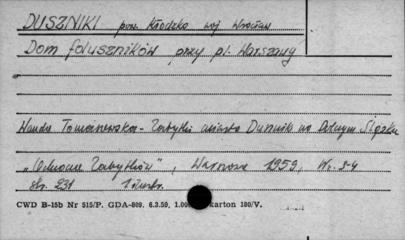 DUSZNIKI pow. Kłodzko woj Wrocław
Dom foluszników przy pl. Warszawy
Wanda Tomaszewska - Zabytki miasta Dusznik na Dolnym Śląsku
"Ochrona Zabytków", Warszawa 1959, Nr. 3-4
str. 231 1 ilustr.
CWD B-15b Nr 515/P. GDA-809. 6.3.59, 1.00 karton 180/V.